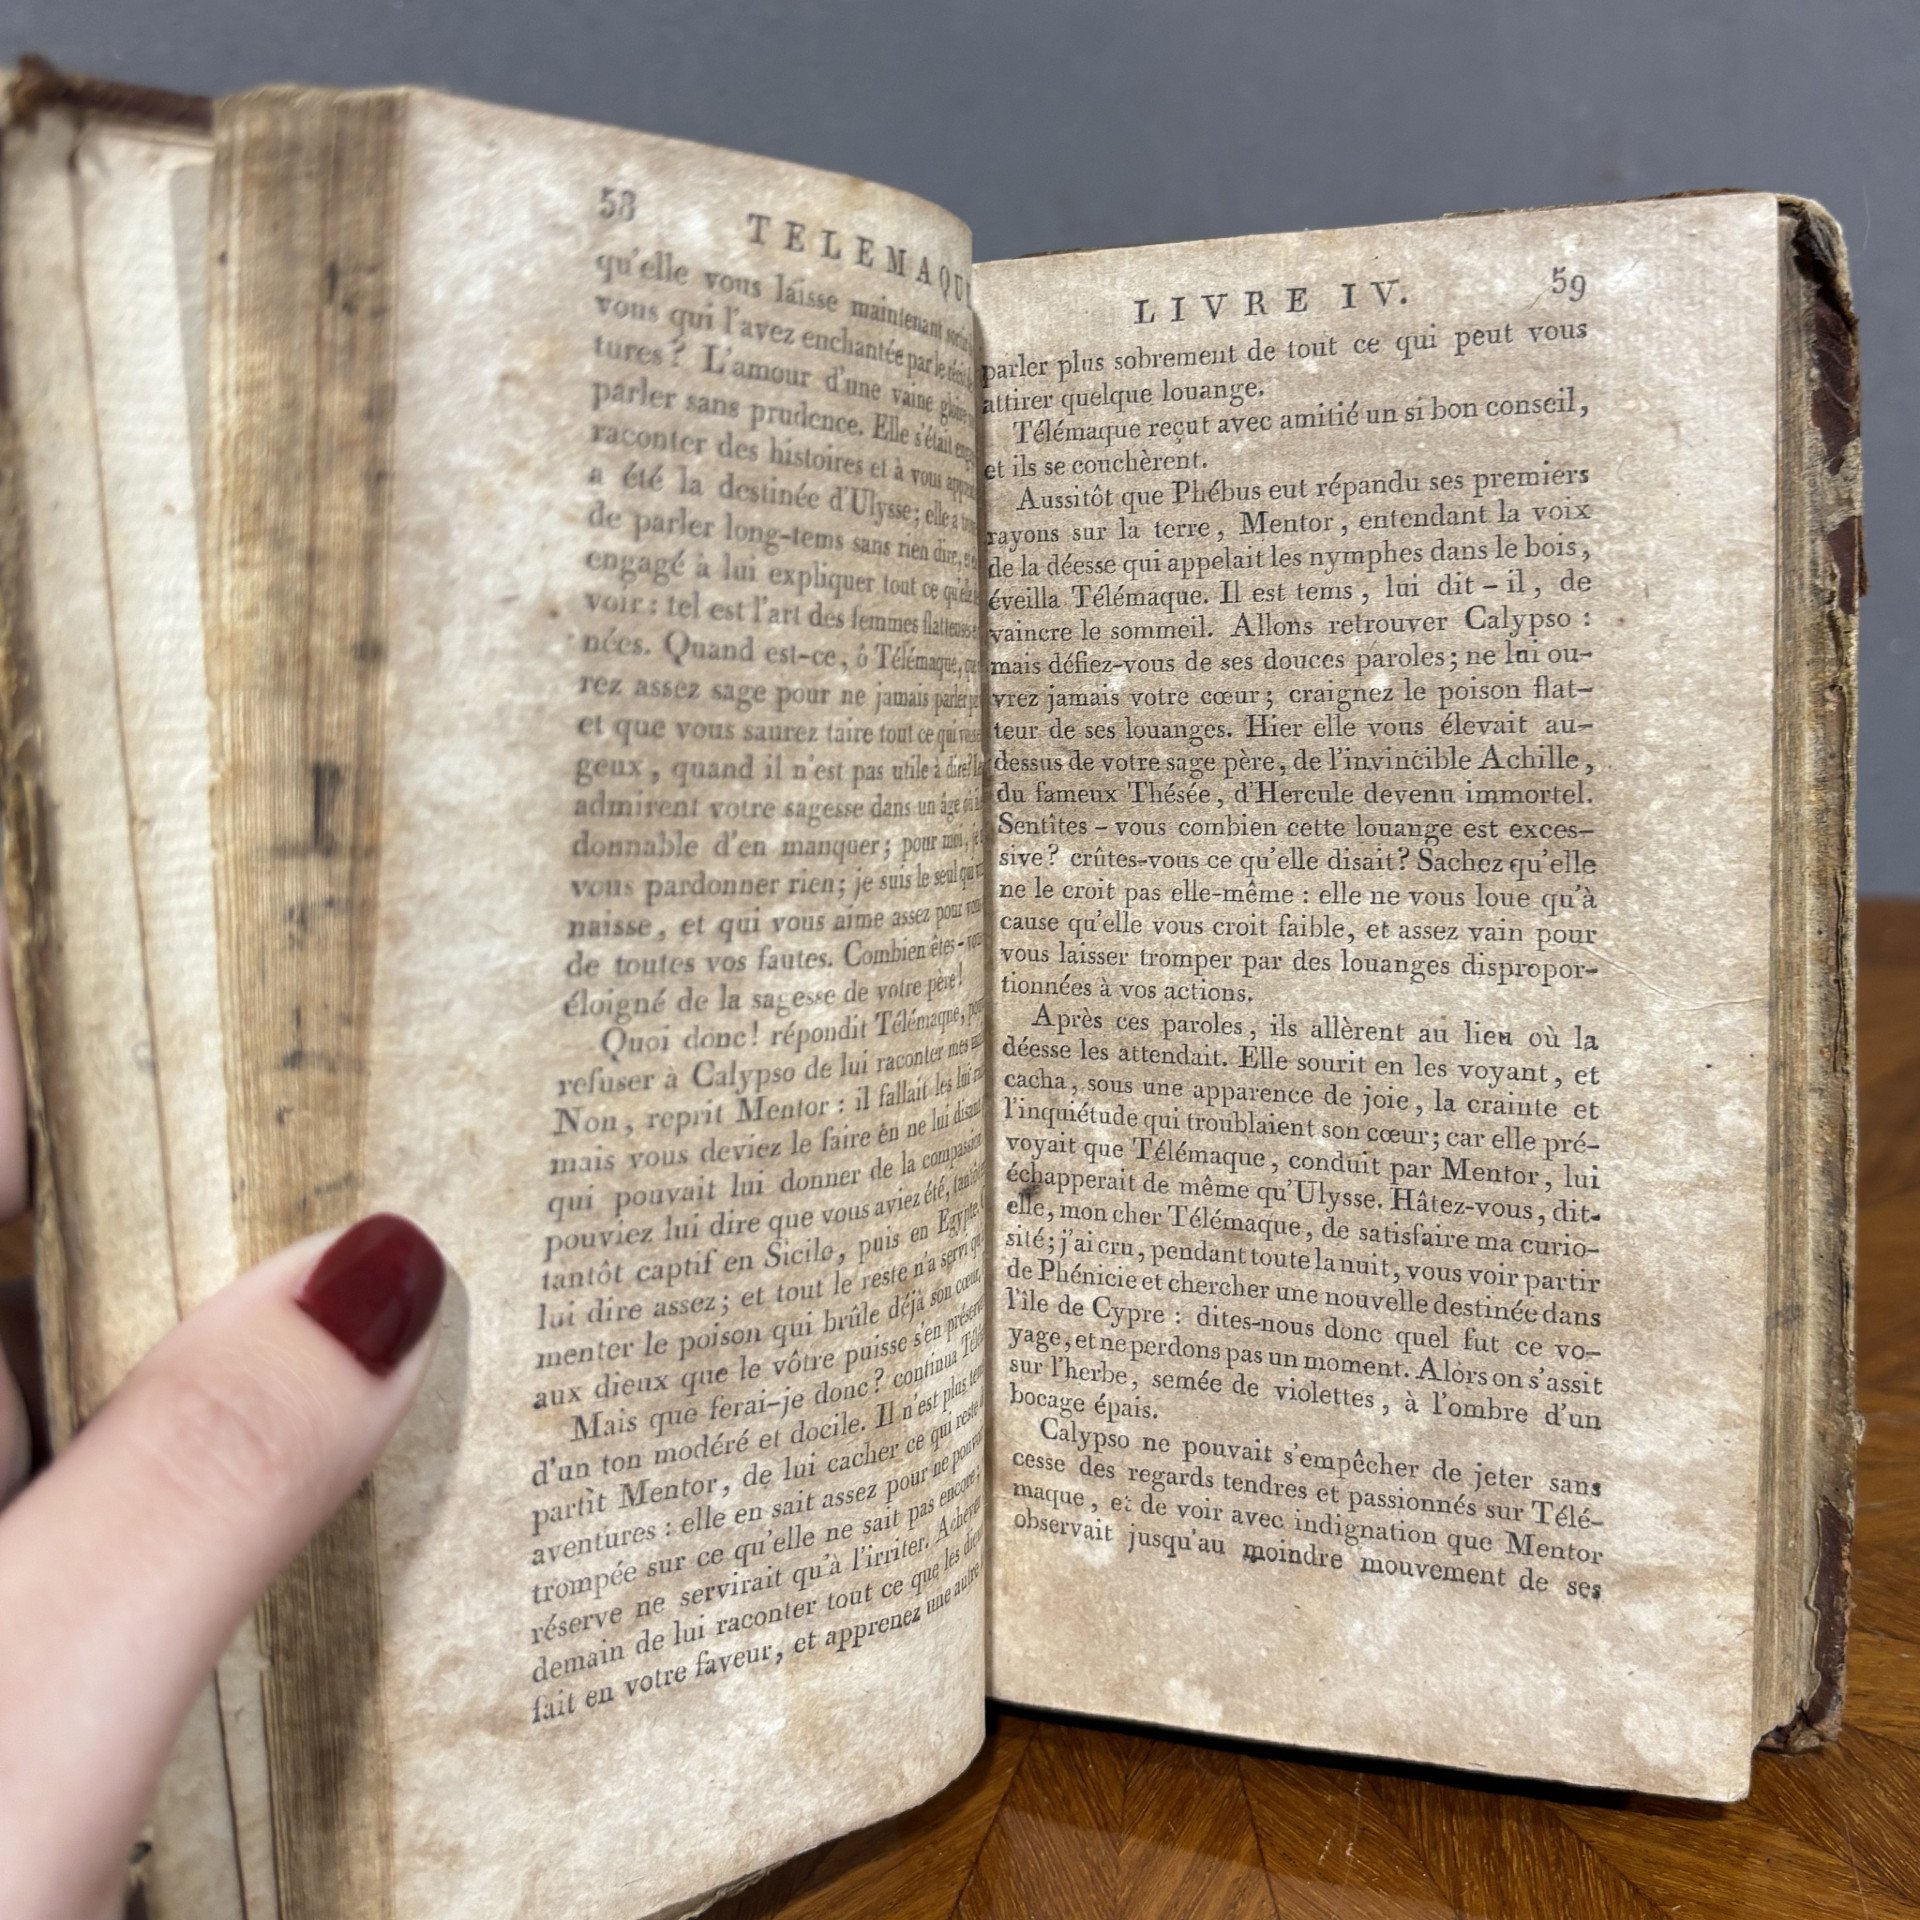 58
TELEMAQUE
qu'elle vous laisse maintenant
vous qui l'avez enchantée par le récit
tures? L'amour d'une vaine gloire
parler sans prudence. Elle s'était
raconter des histoires et à vous
a été la destinée d'Ulysse; elle a
de parler long-tems sans rien dire,
engagé à lui expliquer tout ce qu'elle
voir: tel est l'art des femmes flatteuses
nées. Quand est-ce, ô Télémaque,
rez assez sage pour ne jamais parler
et que vous saurez taire tout ce qui vous
geux, quand il n'est pas utile à dire?
admirent votre sagesse dans un âge où
donnable d'en manquer; pour moi, je
vous pardonner rien; je suis le seul qui
naisse, et qui vous aime assez pour vous
de toutes vos fautes. Combien êtes-vous
éloigné de la sagesse de votre père!
Quoi donc! répondit Télémaque,
refuser à Calypso de lui raconter mes
Non, reprit Mentor: il fallait les lui
mais vous deviez le faire en ne lui disant
qui pouvait lui donner de la compassion
pouviez lui dire que vous aviez été, tantôt
tantôt captif en Sicile, puis en Egypte.
lui dire assez; et tout le reste n'a servi qu'
menter le poison qui brûle déjà son cœur.
aux dieux que le vôtre puisse s'en préserver
Mais que ferai-je donc? continua
d'un ton modéré et docile. Il n'est plus tems
partit Mentor, de lui cacher ce qui reste
aventures: elle en sait assez pour ne pouvoir
trompée sur ce qu'elle ne sait pas encore;
réserve ne servirait qu'à l'irriter. Achevez
demain de lui raconter tout ce que les dieux
fait en votre faveur, et apprenez une autre
LIVRE IV. 59
parler plus sobrement de tout ce qui peut vous
attirer quelque louange.
Télémaque reçut avec amitié un si bon conseil,
et ils se couchèrent.
Aussitôt que Phébus eut répandu ses premiers
rayons sur la terre, Mentor, entendant la voix
de la déesse qui appelait les nymphes dans le bois,
éveilla Télémaque. Il est tems, lui dit-il, de
vaincre le sommeil. Allons retrouver Calypso:
mais défiez-vous de ses douces paroles; ne lui ou-
vrez jamais votre cœur; craignez le poison flat-
teur de ses louanges. Hier elle vous élevait au-
dessus de votre sage père, de l'invincible Achille,
du fameux Thésée, d'Hercule devenu immortel.
Sentîtes-vous combien cette louange est exces-
sive? crûtes-vous ce qu'elle disait? Sachez qu'elle
ne le croit pas elle-même: elle ne vous loue qu'à
cause qu'elle vous croit faible, et assez vain pour
vous laisser tromper par des louanges dispropor-
tionnées à vos actions.
Après ces paroles, ils allèrent au lieu où la
déesse les attendait. Elle sourit en les voyant, et
cacha, sous une apparence de joie, la crainte et
l'inquiétude qui troublaient son cœur; car elle pré-
voyait que Télémaque, conduit par Mentor, lui
échapperait de même qu'Ulysse. Hâtez-vous, dit-
elle, mon cher Télémaque, de satisfaire ma curio-
sité; j'ai cru, pendant toute la nuit, vous voir partir
de Phénicie et chercher une nouvelle destinée dans
l'île de Cypre: dites-nous donc quel fut ce vo-
yage, et ne perdons pas un moment. Alors on s'assit
sur l'herbe, semée de violettes, à l'ombre d'un
bocage épais.
Calypso ne pouvait s'empêcher de jeter sans
cesse des regards tendres et passionnés sur Télé-
maque, et de voir avec indignation que Mentor
observait jusqu'au moindre mouvement de ses